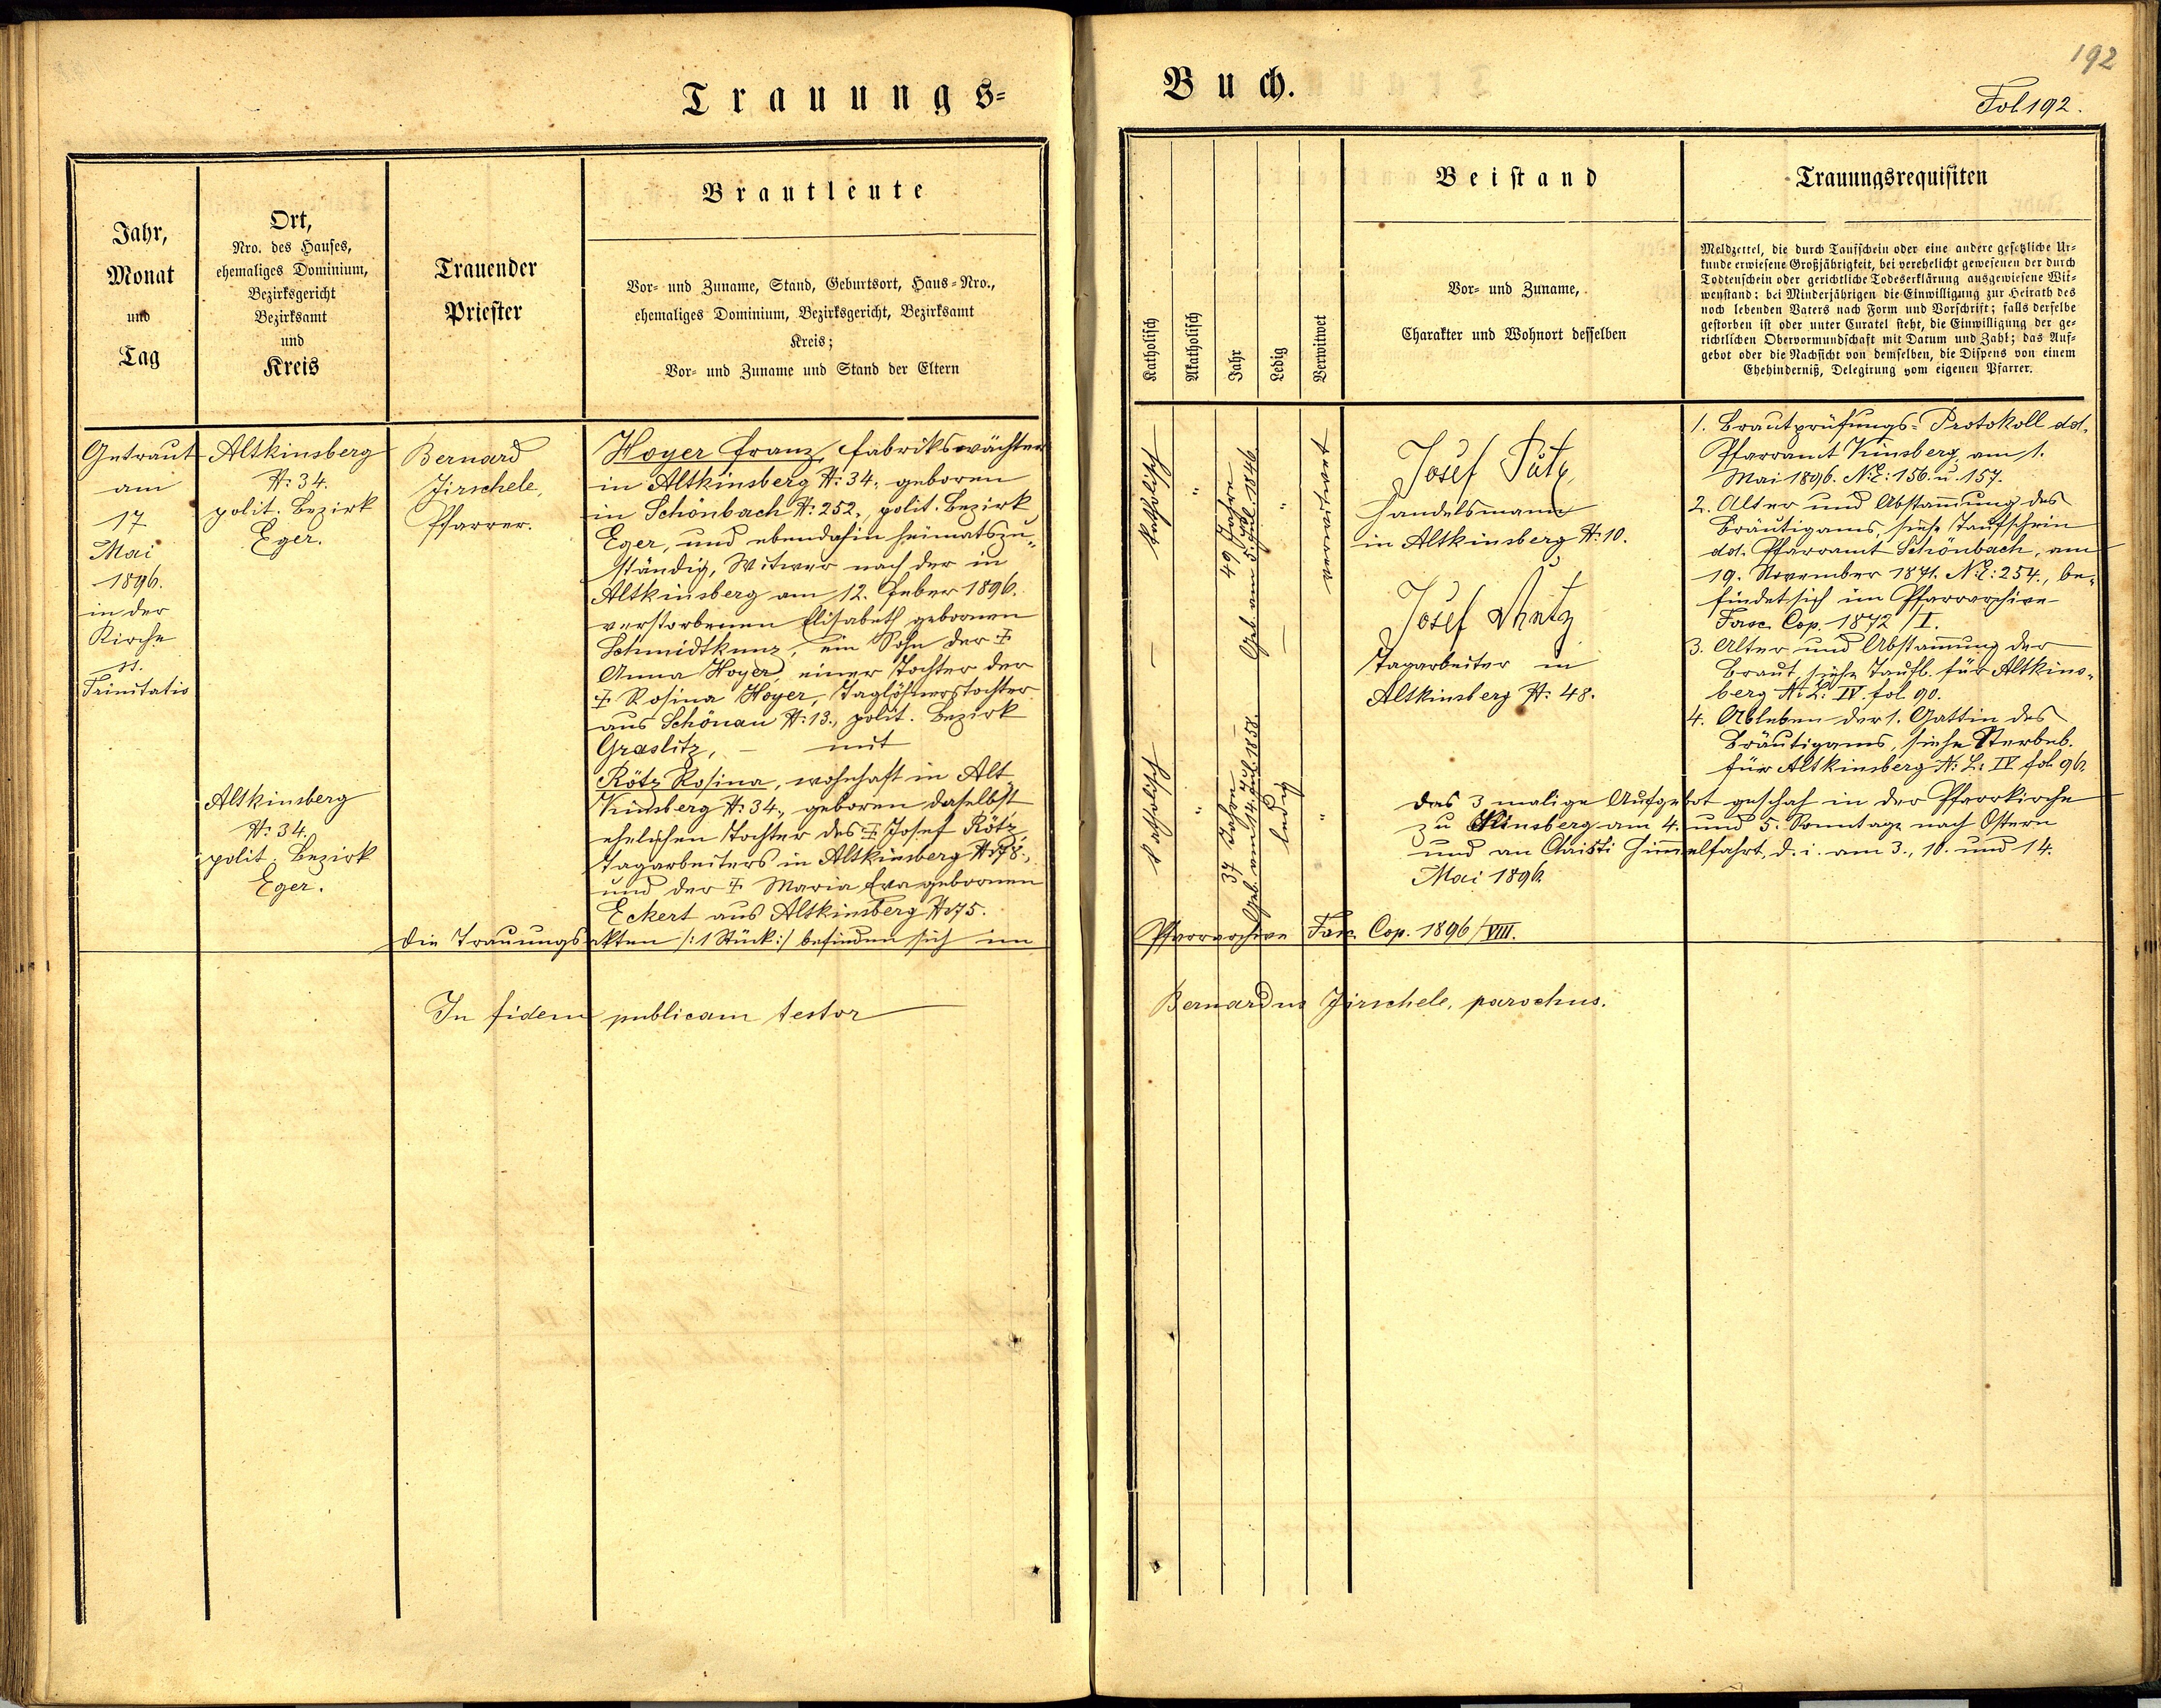 192
Trauungs=
Buch.
Fol 192.
Jahr,
Monat
und
Tag
Ort,
Nro. des Hauses,
ehemaliges Dominium,
Bezirksgericht
Bezirksamt
und
Kreis
Trauender
Priester
Brautleute
Vor- und Zuname, Stand, Geburtsort, Haus-Nro.,
ehemaliges Dominium, Bezirksgericht, Bezirksamt
Kreis;
Vor- und Zuname und Stand der Eltern
Katholisch
Akatholisch
Jahr
Ledig
Verwitwet
Beistand
Vor- und Zuname,
Charakter und Wohnort desselben
Trauungsrequisiten
Meldzettel, die durch Taufschein oder eine andere gesetzliche Ur-
kunde erwiesene Großjährigkeit, bei verehelicht gewesenen der durch
Todtenschein oder gerichtliche Todeserklärung ausgewiesene Wit-
wenstand; bei Minderjährigen die Einwilligung zur Heirath des
noch lebenden Vaters nach Form und Vorschrift; falls derselbe
gestorben ist oder unter Curatel steht, die Einwilligung der ge-
richtlichen Obervormundschaft mit Datum und Zahl; das Auf-
gebot oder die Nachsicht von demselben, die Dispens von einem
Ehehinderniß, Delegirung vom eigenen Pfarrer.
Getraut
am
17
Mai
1896.
in der
Kirche
ss.
Trinitatis
Altkinsberg
N: 34.
polit. Bezirk
Eger.
Bernard
Jirschele,
Pfarrer.
Hoyer Franz, Fabrikswächter
in Altkinsberg N: 34, geboren
in Schönbach N: 252, polit. Bezirk
Eger, und ebendahin heimatszu-
ständig, Witwer nach der in
Altkinsberg am 12. Feber 1896.
verstorbenen Elisabeth gebornen
Schmidtkunz, ein Sohn der †
Anna Hoyer, einer Tochter der
† Rosina Hoyer, Taglöhnerstochter
aus Schönau N: 13., polit. Bezirk
Graslitz, – mit
Rötz Rosina, wohnhaft in Alt-
Kinsberg N: 34., geboren daselbst
ehelichen Tochter des † Josef Rötz,
Tagarbeiters in Altkinsberg N: 78.,
und der † Maria Eva gebornen
Eckert aus Altkinsberg N: 75.
Altkinsberg
N: 34.
polit. Bezirk
Eger.
katholisch
"
49 Jahre
Geb. am 5. 1846.
"
verwitwet
katholisch
"
37 Jahre
Geb. am 14. Juli 1858.
ledig
"
Josef
Handelsmann
in Altkinsberg N: 10.
Josef
Tagarbeiter in
Altkinsberg N: 48.
1. Brautprüfungs-Protokoll dd.
Pfarramt Kinsberg, am 1.
Mai 1896. N.E: 156. u. 157.
2. Alter und Abstammung des
Bräutigams, siehe Taufschein
dd. Pfarramt Schönbach, am
19. November 1871. N.E: 254., be-
findet sich im Pfarrarchive
Fasc. Cop. 1872/I.
3. Alter und Abstammung der
Braut, siehe Taufb. für Altkins-
berg N: L: IV. fol. 90.
4. Ableben der 1. Gattin des
Bräutigams, siehe Sterbeb.
für Altkinsberg N: L: IV fol. 96.
Das 3 malige Aufgebot geschah in der Pfarrkirche
zu Kinsberg am 4. und 5. Sonntage nach Ostern
und an Christi Himmelfahrt, d. i. am 3., 10. und 14.
Mai 1896.
Die Trauungsakten /: 1 Stück :/ befinden sich im
Pfarrarchive Fasc. Cop. 1896/VIII.
In fidem publicam testor
Bernardus Jirschele, parochus.